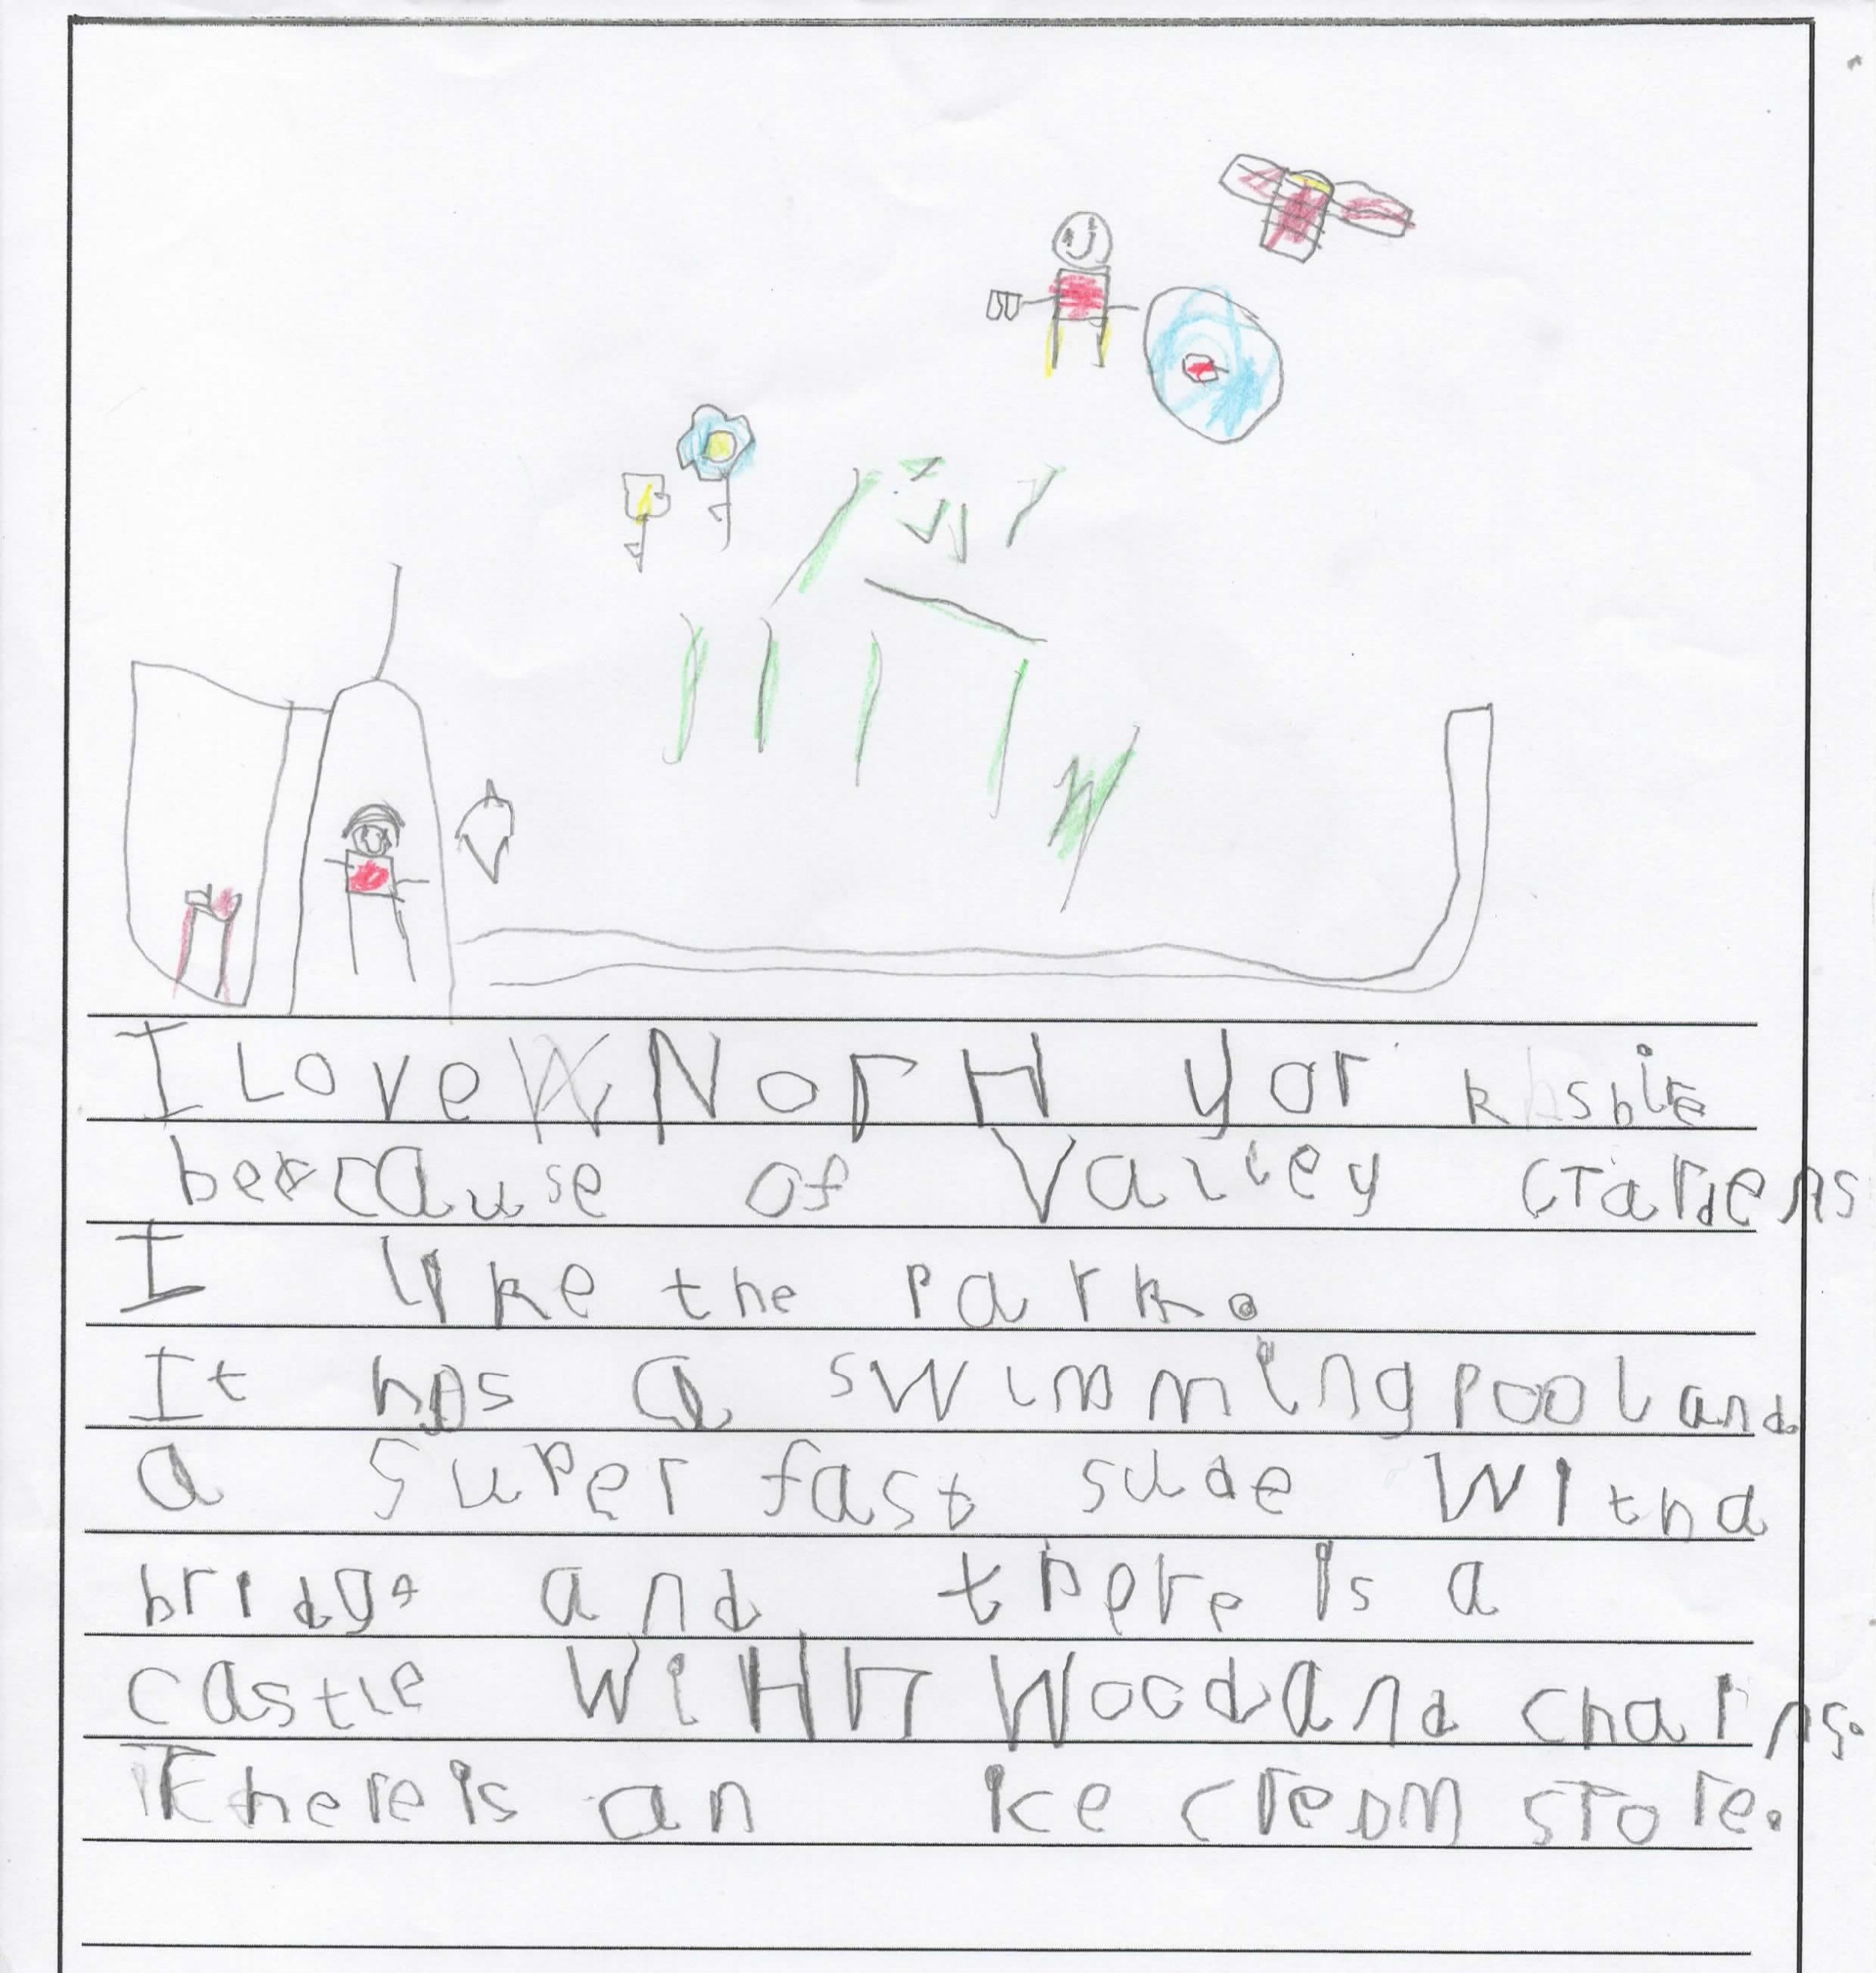 I Love NorH yorkshire
because of Valley Gardens
I like the park.
It has a swimming pool and
a super fast slide with a
bridge and there is a
castle wiHh wood and chains.
There is an ice cream store.